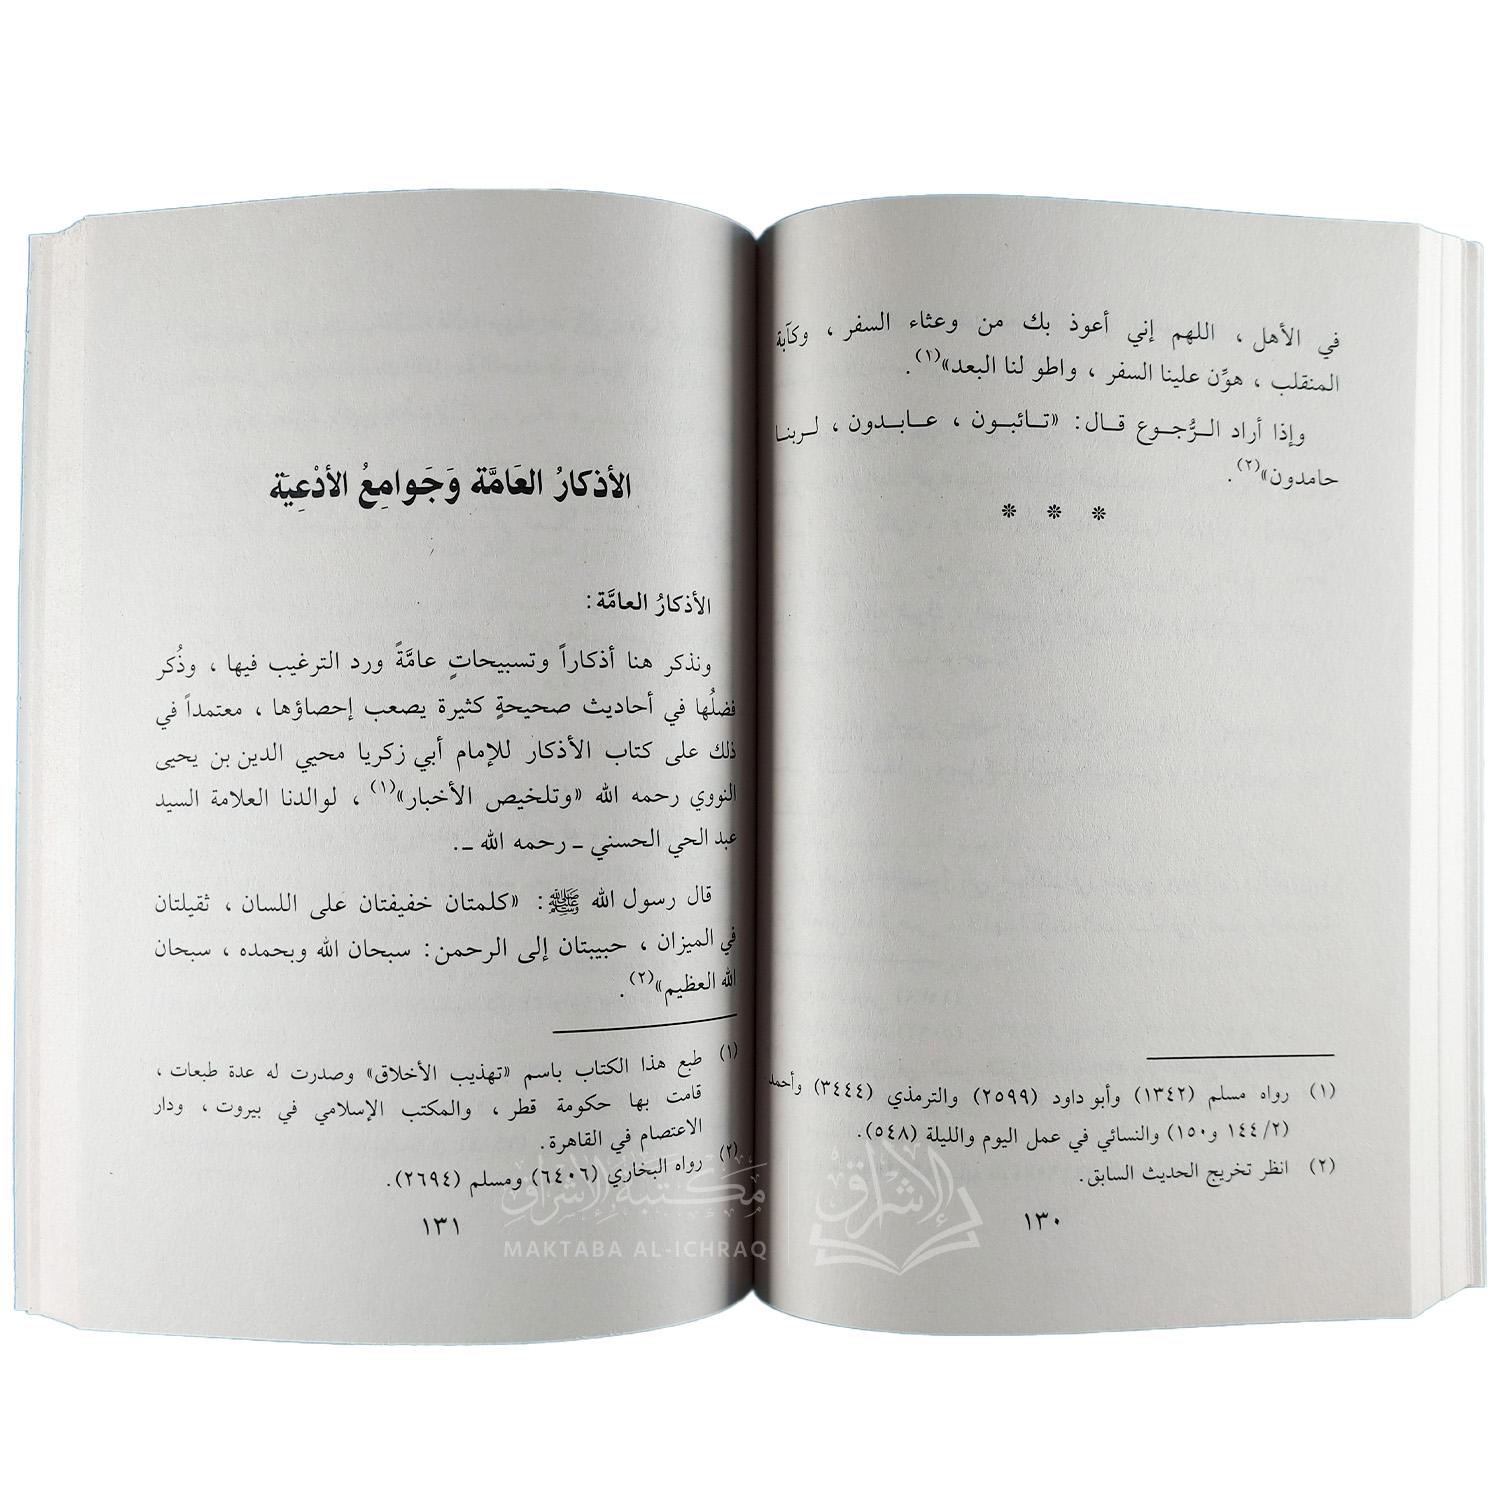 في الأهل ، اللهم إني أعوذ بك من وعثاء السفر ، وكآبة
المنقلب ، هوِّن علينا السفر ، واطو لنا البعد»(١).
وإذا أراد الـرُّجـوع قـال: «تـائبـون ، عـابـدون ، لـربنـا
حامدون»(٢).
* * *
(١) رواه مسلم (١٣٤٢) وأبو داود (٢٥٩٩) والترمذي (٣٤٤٤) وأحمد
(٢/ ١٤٤ و١٥٠) والنسائي في عمل اليوم والليلة (٥٤٨).
(٢) انظر تخريج الحديث السابق.
١٣٠
الأذكارُ العَامَّة وَجَوامِعُ الأدْعِيَة
الأذكارُ العامَّة:
ونذكر هنا أذكاراً وتسبيحاتٍ عامَّةً ورد الترغيب فيها ، وذُكر
فضلُها في أحاديث صحيحةٍ كثيرة يصعب إحصاؤها ، معتمداً في
ذلك على كتاب الأذكار للإمام أبي زكريا محيي الدين بن يحيى
النووي رحمه الله «وتلخيص الأخبار»(١) ، لوالدنا العلامة السيد
عبد الحي الحسني ـ رحمه الله ـ.
قال رسول الله ﷺ: «كلمتان خفيفتان على اللسان ، ثقيلتان
في الميزان ، حبيبتان إلى الرحمن: سبحان الله وبحمده ، سبحان
الله العظيم»(٢).
(١) طبع هذا الكتاب باسم «تهذيب الأخلاق» وصدرت له عدة طبعات ،
قامت بها حكومة قطر ، والمكتب الإسلامي في بيروت ، ودار
الاعتصام في القاهرة.
(٢) رواه البخاري (٦٤٠٦) ومسلم (٢٦٩٤).
١٣١
مكتبة الإشراق
MAKTABA AL-ICHRAQ
الإشراق